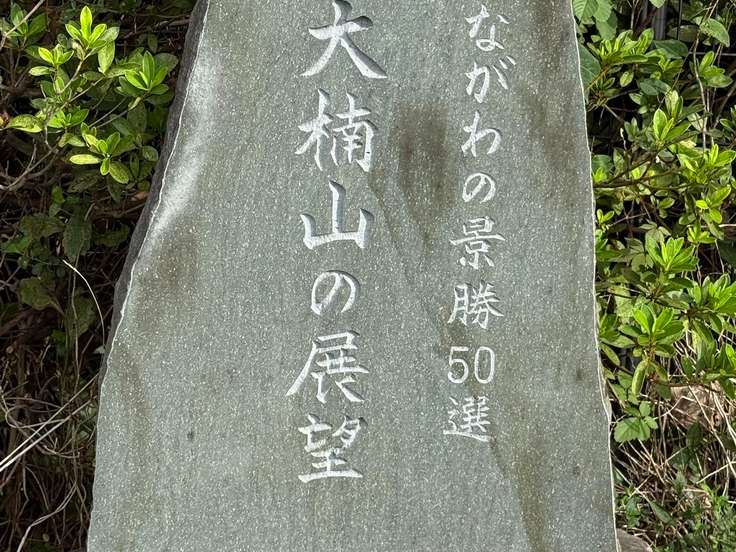 ながわの景勝50選
大楠山の展望